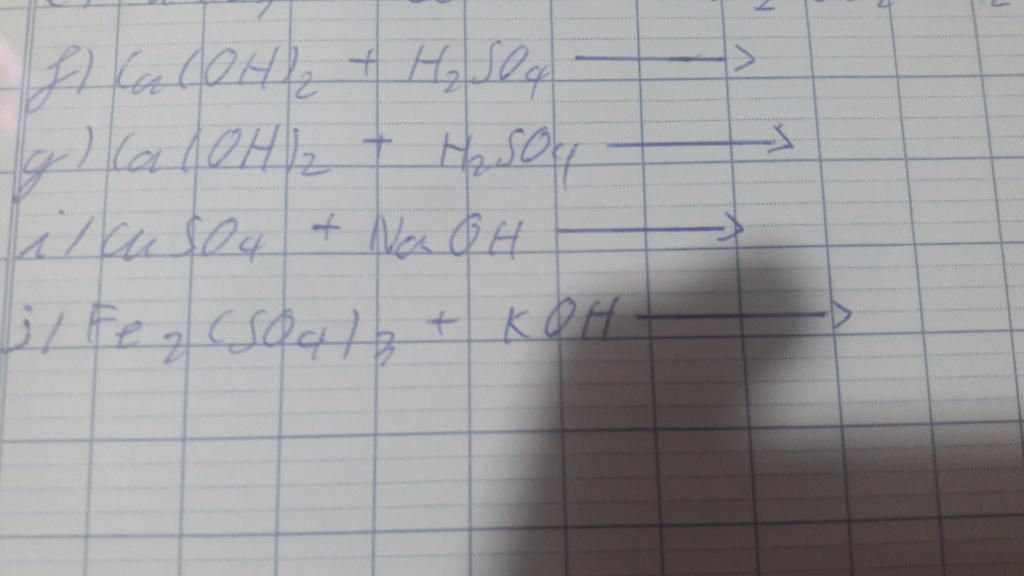 f) Ca(OH)₂ + H₂SO₄ ⟶
g) Ca(OH)₂ + H₂SO₄ ⟶
i/ CuSO₄ + NaOH ⟶
j/ Fe₂(SO₄)₃ + KOH ⟶